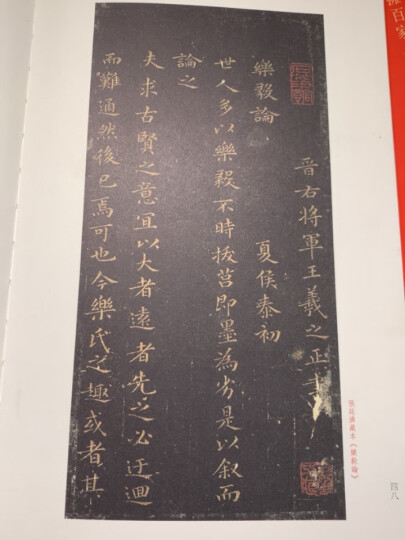 晋右将軍王羲之正書
樂毅論 夏侯泰初
世人多以樂毅不時拔莒即墨為劣是以叙而
論之
夫求古賢之意宜以大者遠者先之必迂迴
而難通然後已焉可也今樂氏之趣或者其
藏本《樂毅論》
四八
百家